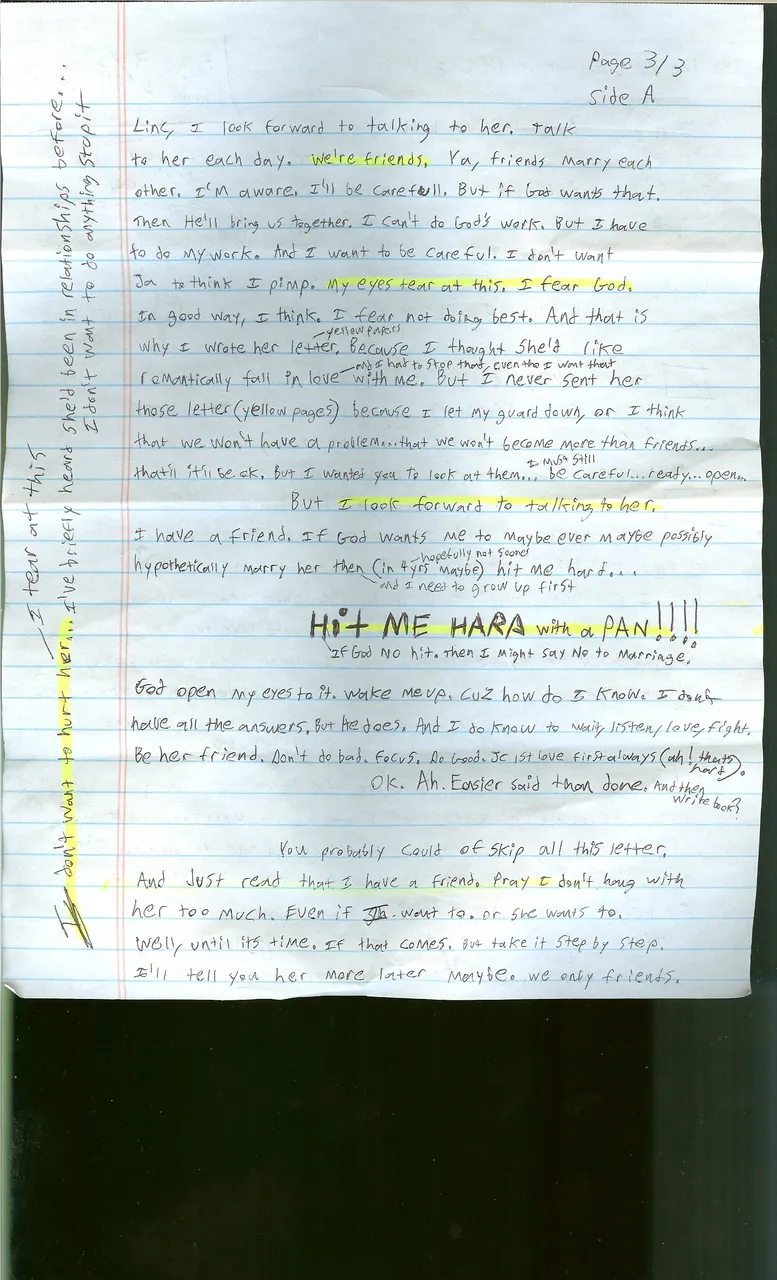 Page 3/3
Side A
Linc, I look forward to talking to her. Talk
to her each day. We're friends. Ya, friends marry each
other. I'm aware. I'll be carefull. But if God wants that.
Then He'll bring us together. I can't do God's work. But I have
to do my work. And I want to be careful. I don't want
Ja to think I pimp. My eyes tear at this. I fear God.
In good way, I think. I fear not doing best. And that is
yellow papers
why I wrote her letter. Because I thought she'd like
and I had to stop that, even tho I want that
romantically fall in love with me. But I never sent her
those letter (yellow pages) because I let my guard down, or I think
that we won't have a problem...that we won't become more than friends...
I must still
that'll it'll be ok. But I wanted you to look at them... be careful...ready...open...
But I look forward to talking to her.
I have a friend. If God wants me to maybe ever maybe possibly
hopefully not sooner
hypothetically marry her then (in 4 yrs maybe) hit me hard...
and I need to grow up first
Hit ME HARD with a PAN!!!!
If God NO hit. Then I might say No to Marriage.
God open my eyes to it. Wake me up. Cuz how do I know. I don't
have all the answers. But He does. And I do know to wait, listen, love, fight.
Be her friend. Don't do bad. Focus. Do Good. JC 1st love first always (ah! thats hard).
OK. Ah. Easier said than done. And then
write book?
You probably could of skip all this letter.
And Just read that I have a friend. Pray I don't hang with
her too much. Even if I want to. or she wants to.
Well, until its time. If that comes. But take it step by step.
I'll tell you her more later maybe. we only friends.
I don't want to hurt her... I've briefly heard she'd been in relationships before...
I tear at this
I don't want to do anything stop it